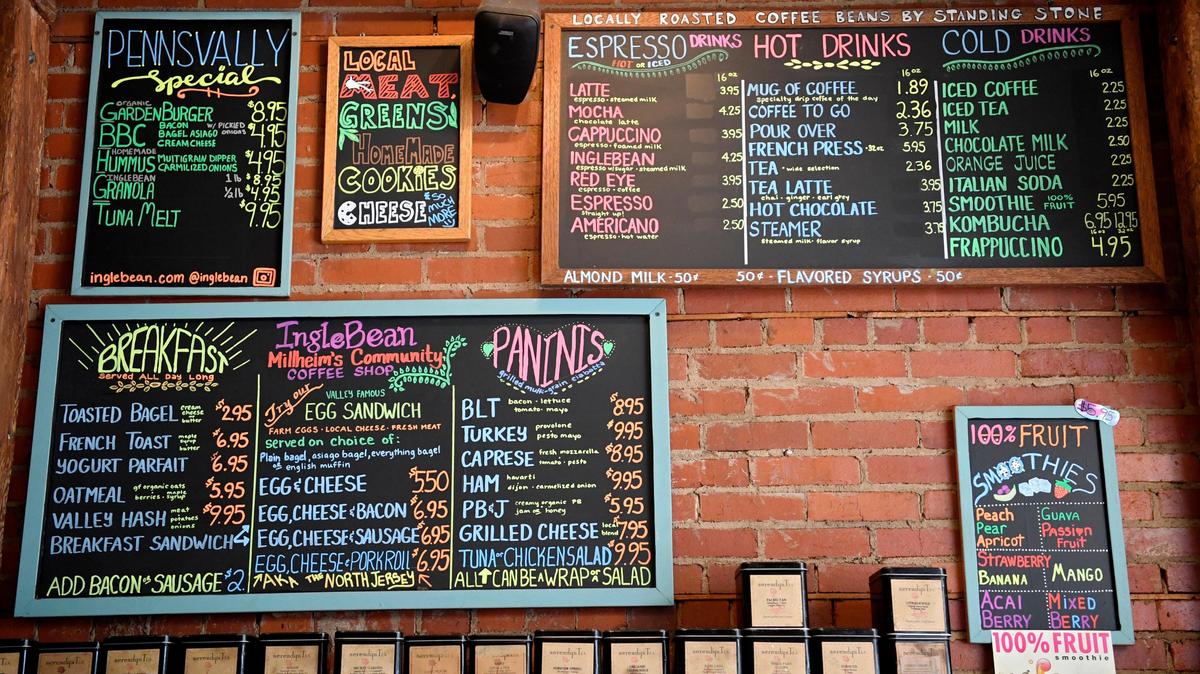 PENNSVALLY
Special
ORGANIC
GARDENBURGER $8.95
BBC BACON W/ PICKLED ONIONS BAGEL ASIAGO CREAM CHEESE $4.95
HOMEMADE
HUMMUS MULTIGRAIN DIPPER CARMILZED ONIONS $4.95
INGLEBEAN
GRANOLA 1 lb $8.95
½ lb $4.95
TUNA MELT $9.95
inglebean.com @inglebean
LOCAL
MEAT,
GREENS,
HOMEMADE
COOKIES
CHEESE & SO MUCH MORE
LOCALLY ROASTED COFFEE BEANS BY STANDING STONE
ESPRESSO DRINKS
HOT OR ICED
16 oz
LATTE 3.95
espresso·steamed milk
MOCHA 4.25
chocolate latte
CAPPUCCINO 3.95
espresso·foamed milk
INGLEBEAN 4.25
espresso w/sugar·steamed milk
RED EYE 3.95
espresso·coffee
ESPRESSO 2.50
straight up!
AMERICANO 2.50
espresso·hot water
HOT DRINKS
16 oz
MUG OF COFFEE 1.89
specialty drip coffee of the day
COFFEE TO GO 2.36
POUR OVER 3.75
FRENCH PRESS·32oz 5.95
TEA·wide selection 2.36
TEA LATTE 3.95
chai·ginger·earl grey
HOT CHOCOLATE 3.75
STEAMER
steamed milk·flavor syrup
COLD DRINKS
16 oz
ICED COFFEE 2.25
ICED TEA 2.25
MILK 2.25
CHOCOLATE MILK 2.50
ORANGE JUICE 2.25
ITALIAN SODA 2.25
SMOOTHIE 100% FRUIT 5.95
KOMBUCHA 6.95 12.95
16 oz 32 oz
FRAPPUCCINO 4.95
ALMOND MILK·50¢ 50¢·FLAVORED SYRUPS·50¢
BREAKFAST
served ALL DAY Long
TOASTED BAGEL cream cheese or butter $2.95
FRENCH TOAST maple syrup butter $6.95
YOGURT PARFAIT 6.95
OATMEAL gf organic oats maple berries·syrup $5.95
VALLEY HASH meat potatoes onions $9.95
BREAKFAST SANDWICH
ADD BACON OR SAUSAGE $2
INGLEBEAN
Millheim's Community
COFFEE SHOP
Try our VALLEY FAMOUS
EGG SANDWICH
FARM EGGS·LOCAL CHEESE·FRESH MEAT
served on choice of:
Plain bagel, asiago bagel, everything bagel
or english muffin
EGG & CHEESE $5.50
EGG, CHEESE & BACON $6.95
EGG, CHEESE & SAUSAGE $6.95
EGG, CHEESE & PORK ROLL $6.95
AKA THE NORTH JERSEY
PANINIS
grilled multi-grain ciabatta
BLT bacon·lettuce tomato·mayo $8.95
TURKEY provolone pesto mayo $9.95
CAPRESE fresh mozzarella tomato·pesto $8.95
HAM havarti dijon·carmelized onion $9.95
PB&J creamy organic PB jam or honey $5.95
GRILLED CHEESE local blend $7.95
TUNA OR CHICKEN SALAD $9.95
ALL CAN BE A WRAP OR SALAD
$5.95
100% FRUIT
SMOOTHIES
Peach Pear Apricot
Guava Passion Fruit
STRAWBERRY BANANA
MANGO
ACAI BERRY
MIXED BERRY
100% FRUIT
smoothie
serendipiTea